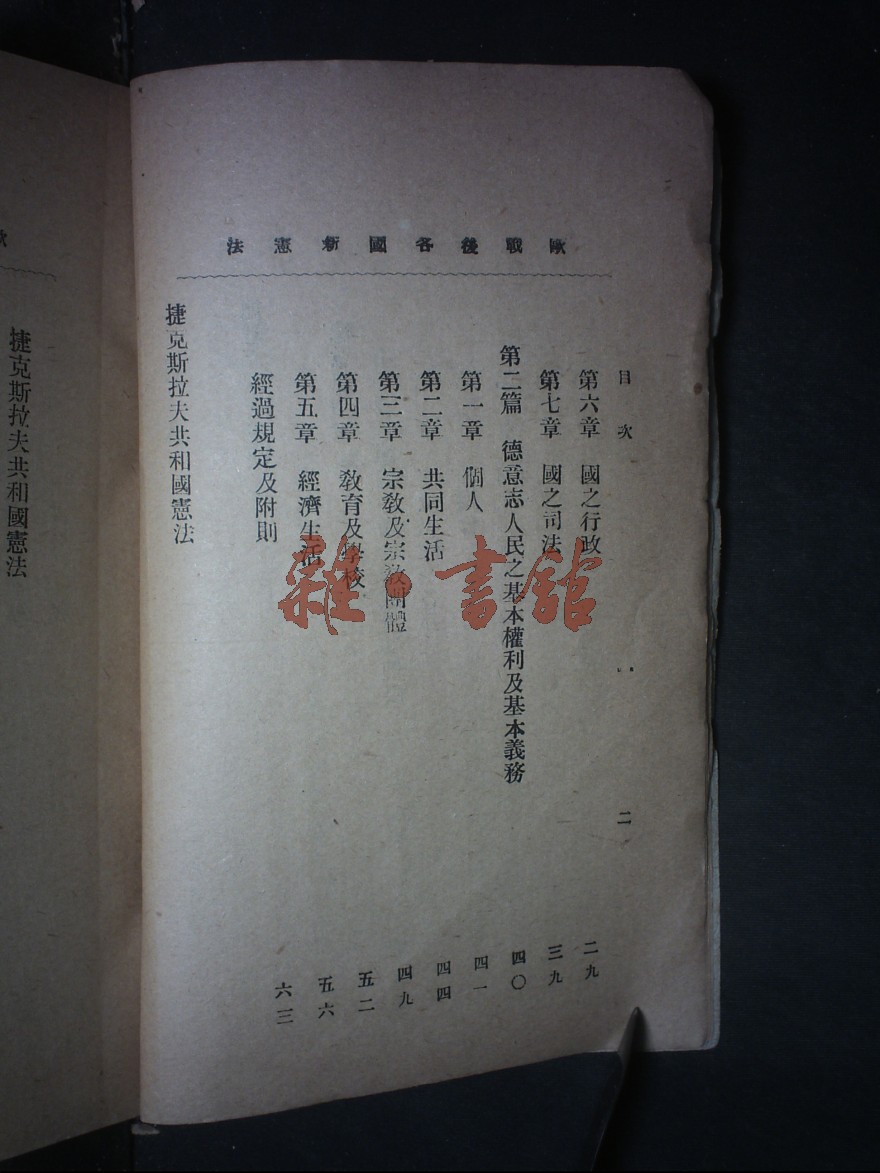 歐戰後各國新憲法
目次
二
第六章 國之行政 二九
第七章 國之司法 三九
第二篇 德意志人民之基本權利及基本義務 四〇
第一章 個人 四一
第二章 共同生活 四四
第三章 宗敎及宗敎團體 四九
第四章 敎育及學校 五二
第五章 經濟生活 五六
經過規定及附則 六三
捷克斯拉夫共和國憲法
捷克斯拉夫共和國憲法
雜·書館